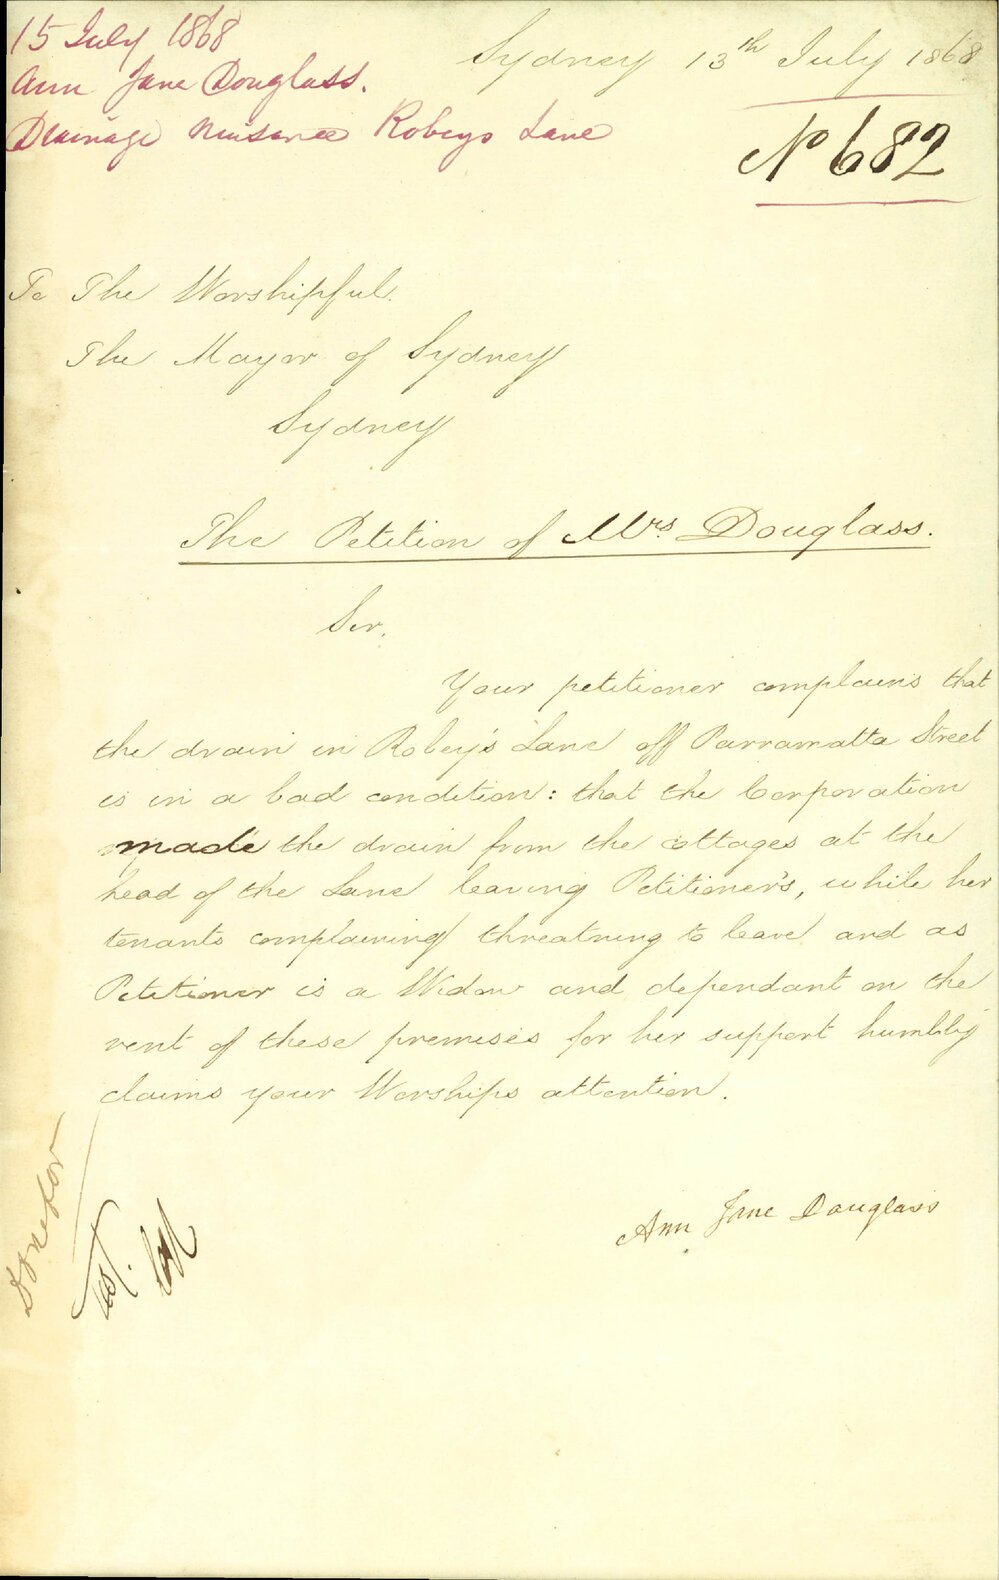 15 July 1868
Ann Jane Douglass.
Drainage Nuisance Robeys Lane
Sydney 13th July 1868
No 682
To The Worshipful.
The Mayor of Sydney
Sydney
The Petition of Mrs Douglass.
Sir,
Your petitioner complains that
the drain in Robey's Lane off Parramatta Street
is in a bad condition: that the Corporation
made the drain from the cottages at the
head of the Lane leaving Petitioner's, while her
tenants complaining threatning to leave and as
Petitioner is a Widow and dependant on the
rent of these premises for her support humbly
claims your Worships attention.
Ann Jane Douglass